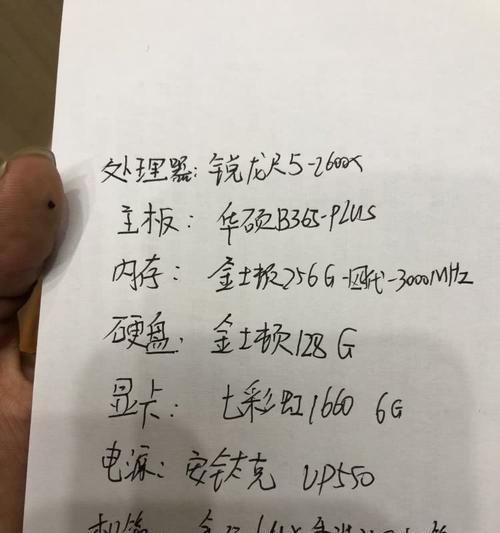 处理器: 锐龙R5-2600X
主板: 华硕B365-PLUS
内存: 金士顿256G-四代-3000MHz
硬盘: 金士顿128G
显卡: 七彩虹1660 6G
电源: 安钛克 VP550
机箱: